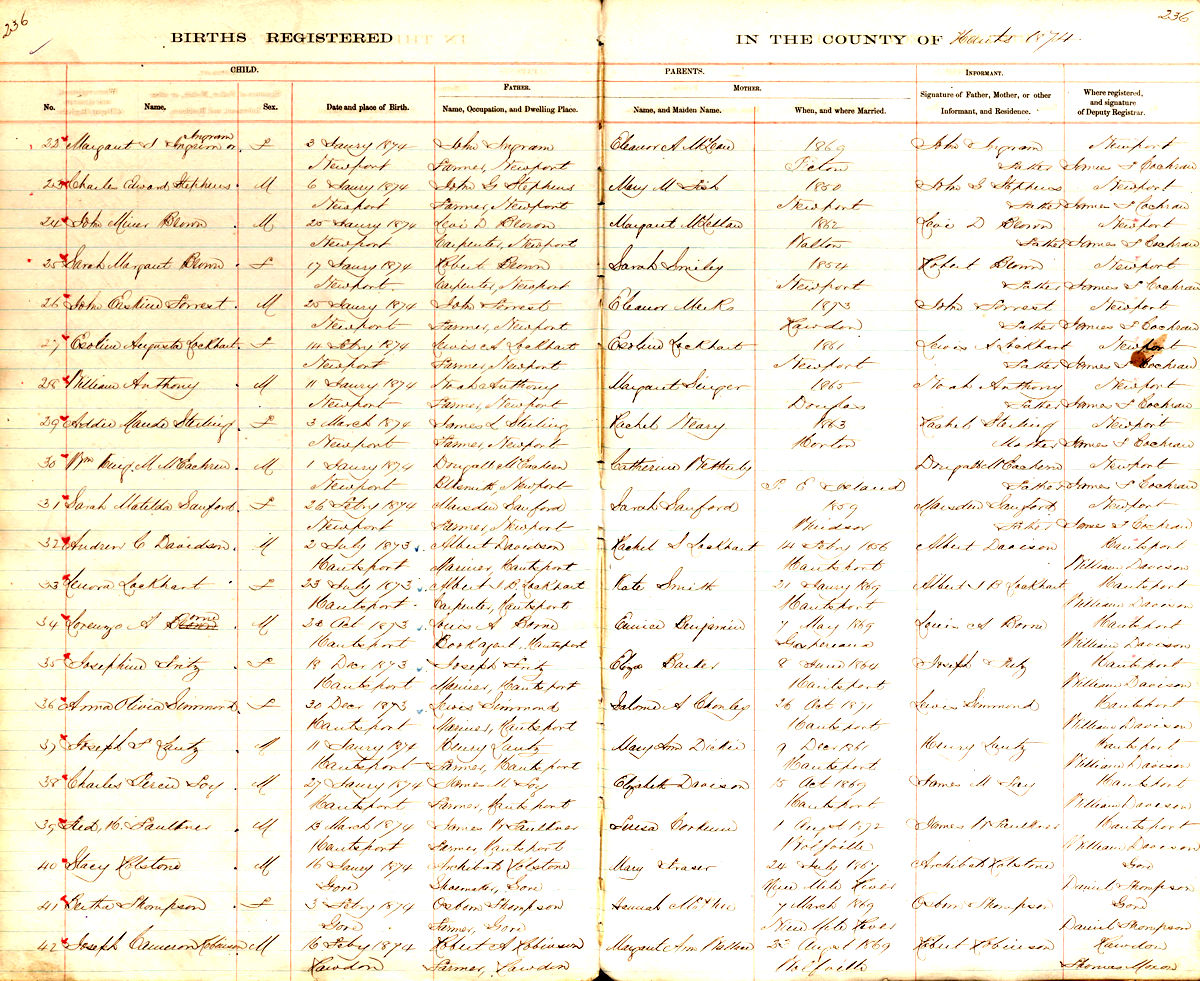 236
236
BIRTHS REGISTERED IN THE COUNTY OF Hants 1874.
CHILD. PARENTS. INFORMANT.
FATHER. MOTHER.
No. Name. Sex. Date and place of Birth. Name, Occupation, and Dwelling Place. Name, and Maiden Name. When, and where Married. Signature of Father, Mother, or other Informant, and Residence. Where registered, and signature of Deputy Registrar.
Ingram
22 Margaret Ingram F 3 Jaury 1874 John Ingram Eleanor A McLean 1869 John Ingram Newport
Newport Farmer, Newport Father James F Cochran
23 Charles Edward Stephens M 6 Jaury 1874 John G Stephens Mary M Fish 1850 John G Stephens Newport
Newport Farmer, Newport Newport Father James F Cochran
24 John Miner Brown M 20 Jaury 1874 Levi D Brown Margaret McLellan 1862 Levi D Brown Newport
Newport Carpenter, Newport Walton Father James F Cochran
25 Sarah Margaret Brown F 17 Jaury 1874 Robert Brown Sarah Smiley 1854 Robert Brown Newport
Newport Carpenter, Newport Newport Father James F Cochran
26 John Erskine Forrest M 25 Jaury 1874 John Forrest Eleanor 1873 John Forrest Newport
Newport Farmer, Newport Rawdon Father James F Cochran
27 Augusta Lockhart F 14 Febry 1874 Lewis A Lockhart Lockhart 1861 Lewis A Lockhart Newport
Newport Farmer, Newport Newport Father James F Cochran
28 William Anthony M 11 Jaury 1874 Noah Anthony Margaret Singer 1865 Noah Anthony Newport
Newport Farmer, Newport Douglas Father James F Cochran
29 Addie Maude Sterling F 3 March 1874 James L Sterling Rachel Neary 1863 Rachel Sterling Newport
Newport Farmer, Newport Horton Mother James F Cochran
30 Wm Benj. M. McEachern M 1 Jaury 1874 Dougall McEachern Catherine Dougall McEachern Newport
Newport Blksmith, Newport P. E Island Father James F Cochran
31 Sarah Matilda Sanford F 26 Febry 1874 Marsden Sanford Sarah Sanford 1859 Marsden Sanford Newport
Newport Farmer, Newport Windsor Father James F Cochran
32 Andrew C Davidson M 2 July 1873 Albert Davidson Rachel S Lockhart 14 Febry 1856 Albert Davison Hantsport
Hantsport Mariner, Hantsport Hantsport William Davison
33 Lenora Lockhart F 23 July 1873 Albert J B Lockhart Kate Smith 21 Jaury 1869 Albert J B Lockhart Hantsport
Hantsport Carpenter, Hantsport Hantsport William Davison
34 Lorenzo A Borne M 22 Oct 1873 Louis A Borne Eunice Benjamin 7 May 1869 Louis A Borne Hantsport
Hantsport Book agent, Hantsport Gaspereaux William Davison
35 Josephine Fritz F 18 Decr 1873 Joseph Fritz Eliza Barker 8 June 1864 Joseph Fritz Hantsport
Hantsport Mariner, Hantsport Hantsport William Davison
36 Anna Olivia Simmond F 30 Decr 1873 Lewis Simmond Salome A 26 Oct 1871 Lewis Simmond Hantsport
Hantsport Mariner, Hantsport Hantsport William Davison
37 Joseph F Lantz M 11 Jaury 1874 Henry Lantz Mary Ann Dickie 9 Decr 1861 Henry Lantz Hantsport
Hantsport Farmer, Hantsport Hantsport William Davison
38 Charles Foy M 27 Jaury 1874 James W Foy Elizabeth Davison 15 Oct 1869 James W Foy Hantsport
Hantsport Farmer, Hantsport Hantsport William Davison
39 Fred. H. Faulkner M 13 March 1874 James W Faulkner Louisa 1 Augst 1872 James W Faulkner Hantsport
Hantsport Farmer Hantsport Wolfville William Davison
40 Stacy Rolstone M 16 Jaury 1874 Archibald Rolstone Mary Fraser 24 July 1867 Archibald Rolstone Gore
Gore Shoemaker, Gore Nine Mile River Daniel Thompson
41 Bertha Thompson F 3 Febry 1874 Osborn Thompson Hannah 7 March 1869 Osborn Thompson Gore
Gore Farmer, Gore Nine Mile River Daniel Thompson
42 Joseph Cameron Robinson M 16 Febry 1874 Robert A Robinson Margaret Ann Wallace 23 Augst 1869 Robert Robinson Rawdon
Rawdon Farmer, Rawdon Wolfville Thomas Moxon